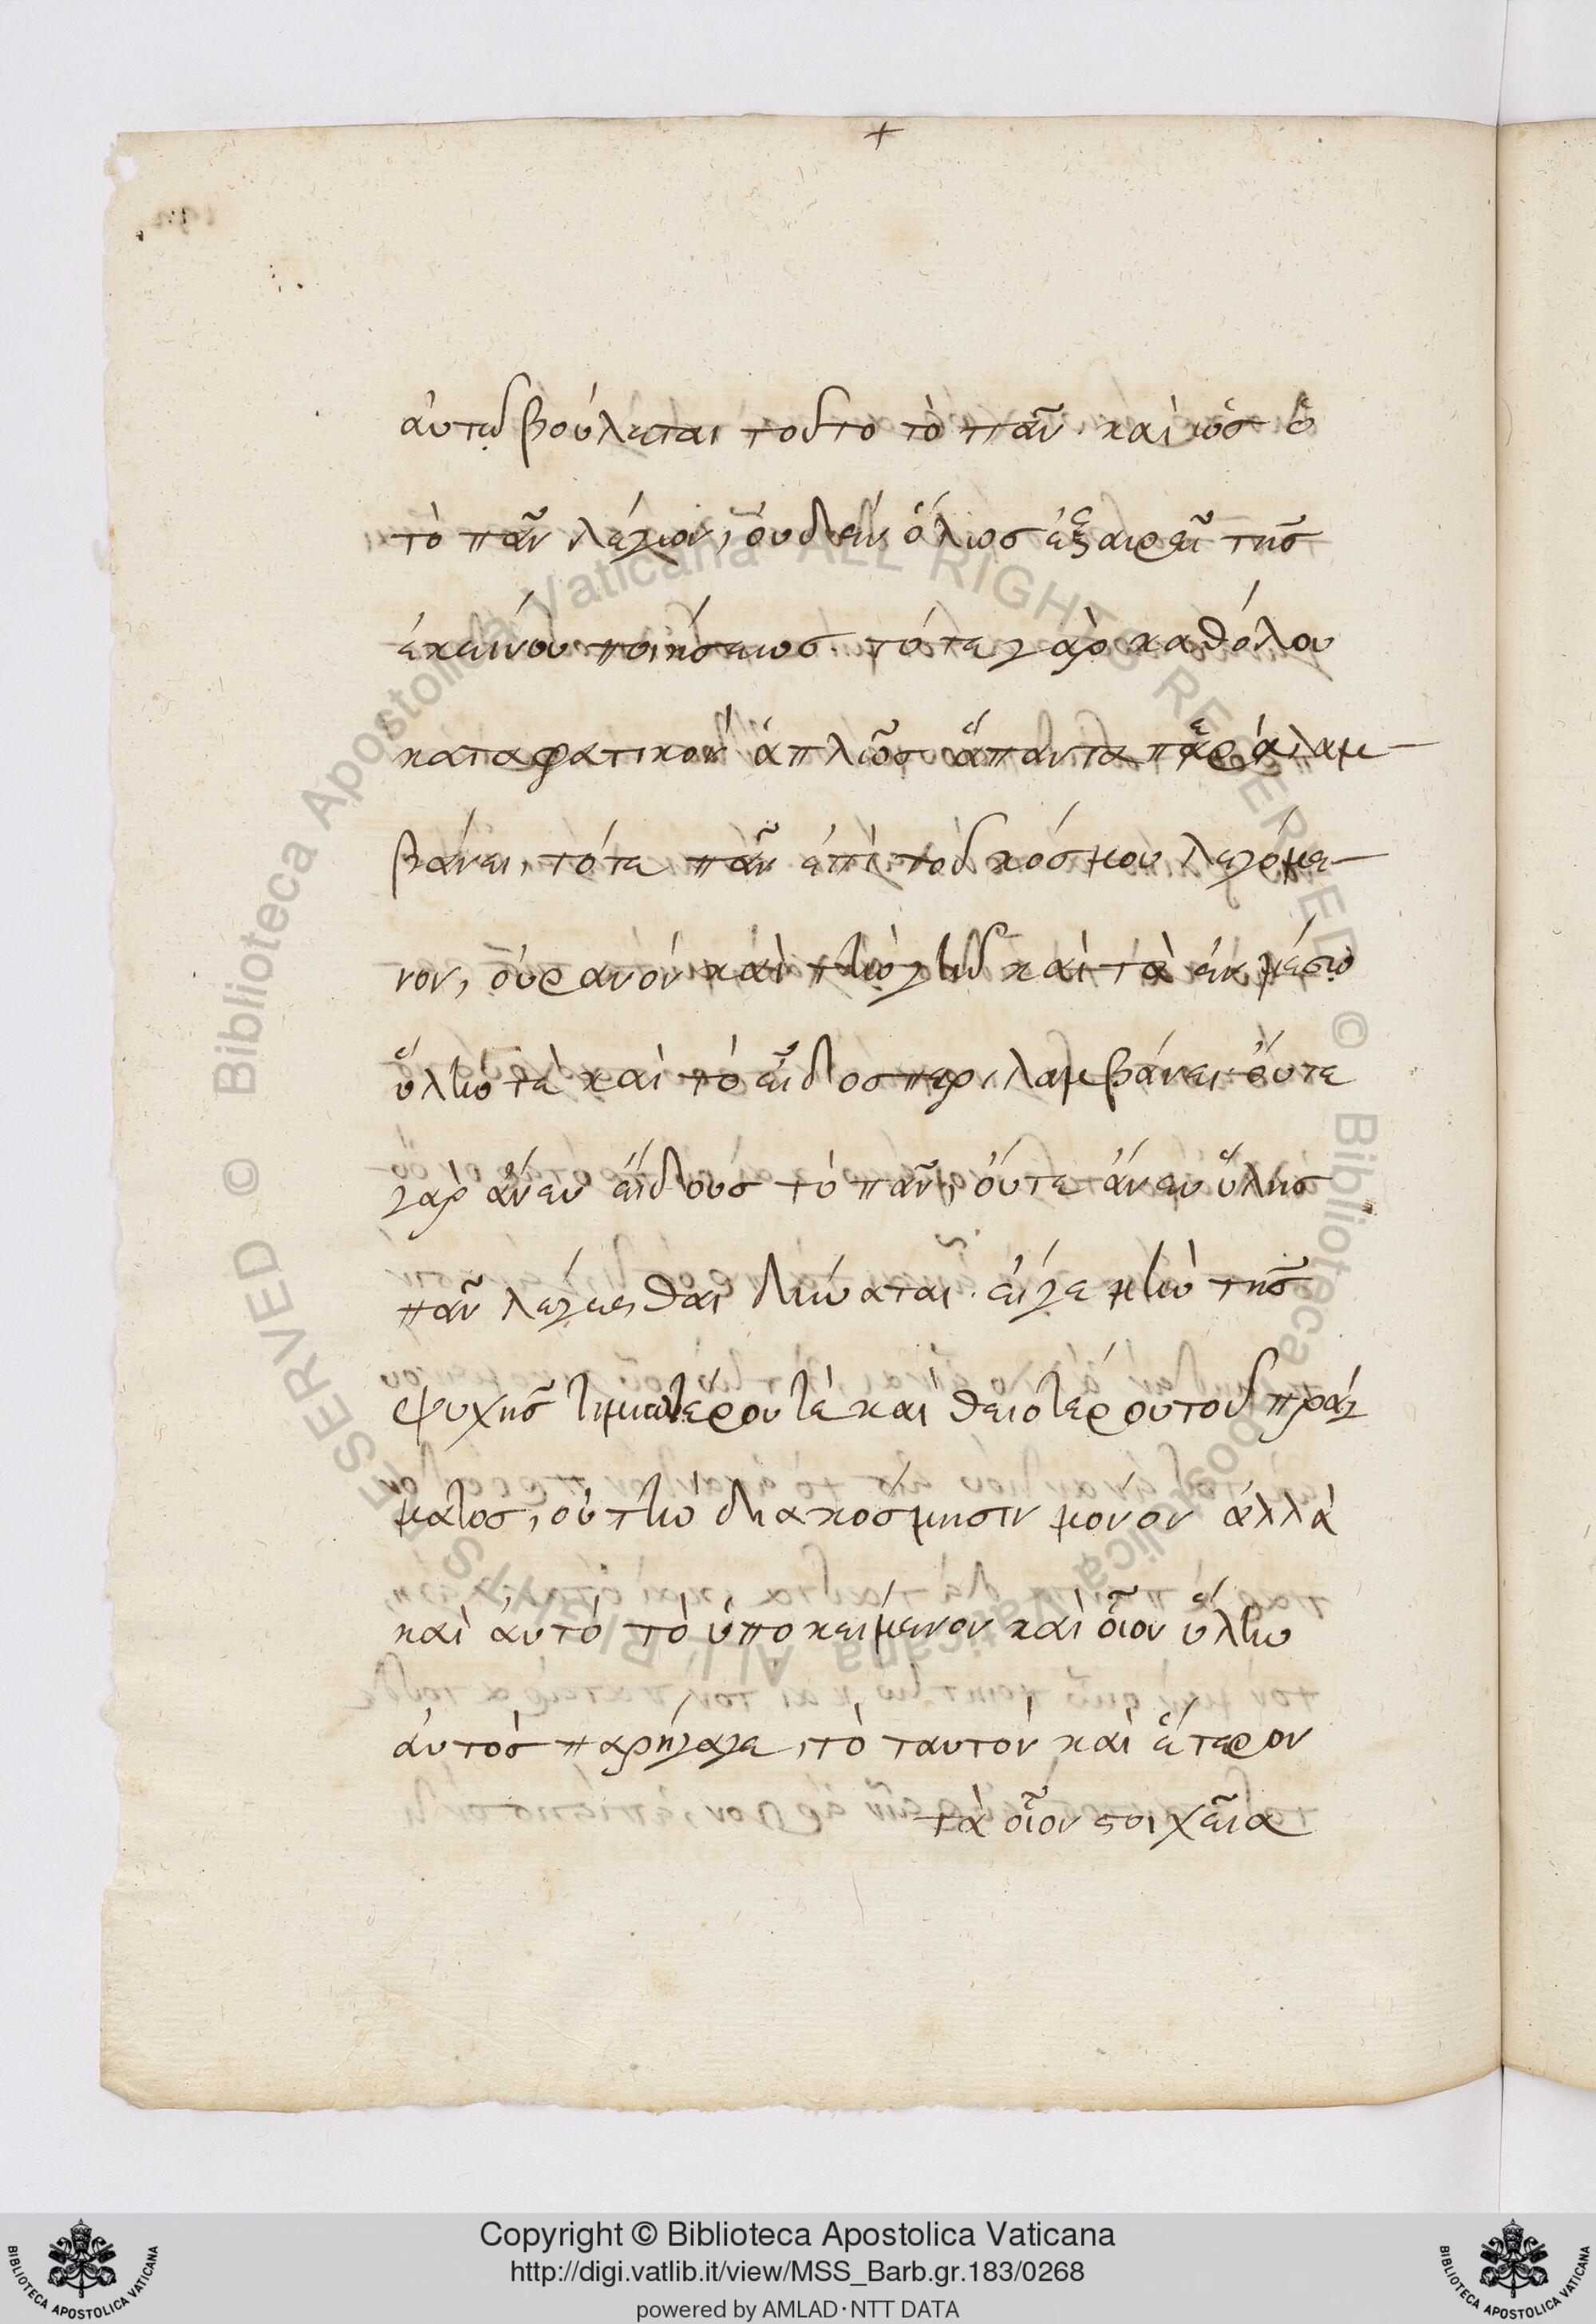 +
αὐτῷ βούλεται τοῦτο τὸ πᾶν. καὶ ὡς ὁ
τὸ πᾶν λέγων, οὐδὲν ὅλως ἐξαιρεῖ τῆς
ἐκείνου ποιήσεως. τό τε γὰρ καθόλου
καταφατικὸν ἁπλῶς ἅπαντα παραλαμ-
βάνει, τό τε πᾶν ἐπὶ τοῦ κόσμου λεγόμε-
νον, οὐρανὸν καὶ τὴν γῆν καὶ τὰ ἐν μέσῳ
ὕλην τὲ καὶ τὸ εἶδος περιλαμβάνει. οὔτε
γὰρ ἄνευ εἴδους τὸ πᾶν, οὔτε ἄνευ ὕλης
πᾶν λέγεσθαι δύναται. εἰ γε μὴν τῆς
ψυχῆς τιμιωτέρου τὲ καὶ θειοτέρου τοῦ πράγ
ματος, οὐ τὴν διακόσμησιν μόνον ἀλλὰ
καὶ αὐτὸ τὸ ὑποκείμενον καὶ οἷον ὕλην
αὐτὸς παρήγαγε, τὸ ταυτὸν καὶ ἕτερον
τὰ οἷον στοιχεῖα
Copyright © Biblioteca Apostolica Vaticana
http://digi.vatlib.it/view/MSS_Barb.gr.183/0268
powered by AMLAD·NTT DATA
BIBLIOTECA APOSTOLICA VATICANA
BIBLIOTECA APOSTOLICA VATICANA
© Biblioteca Apostolica Vaticana ALL RIGHTS RESERVED © Biblioteca Apostolica Vaticana ALL RIGHTS RESERVED